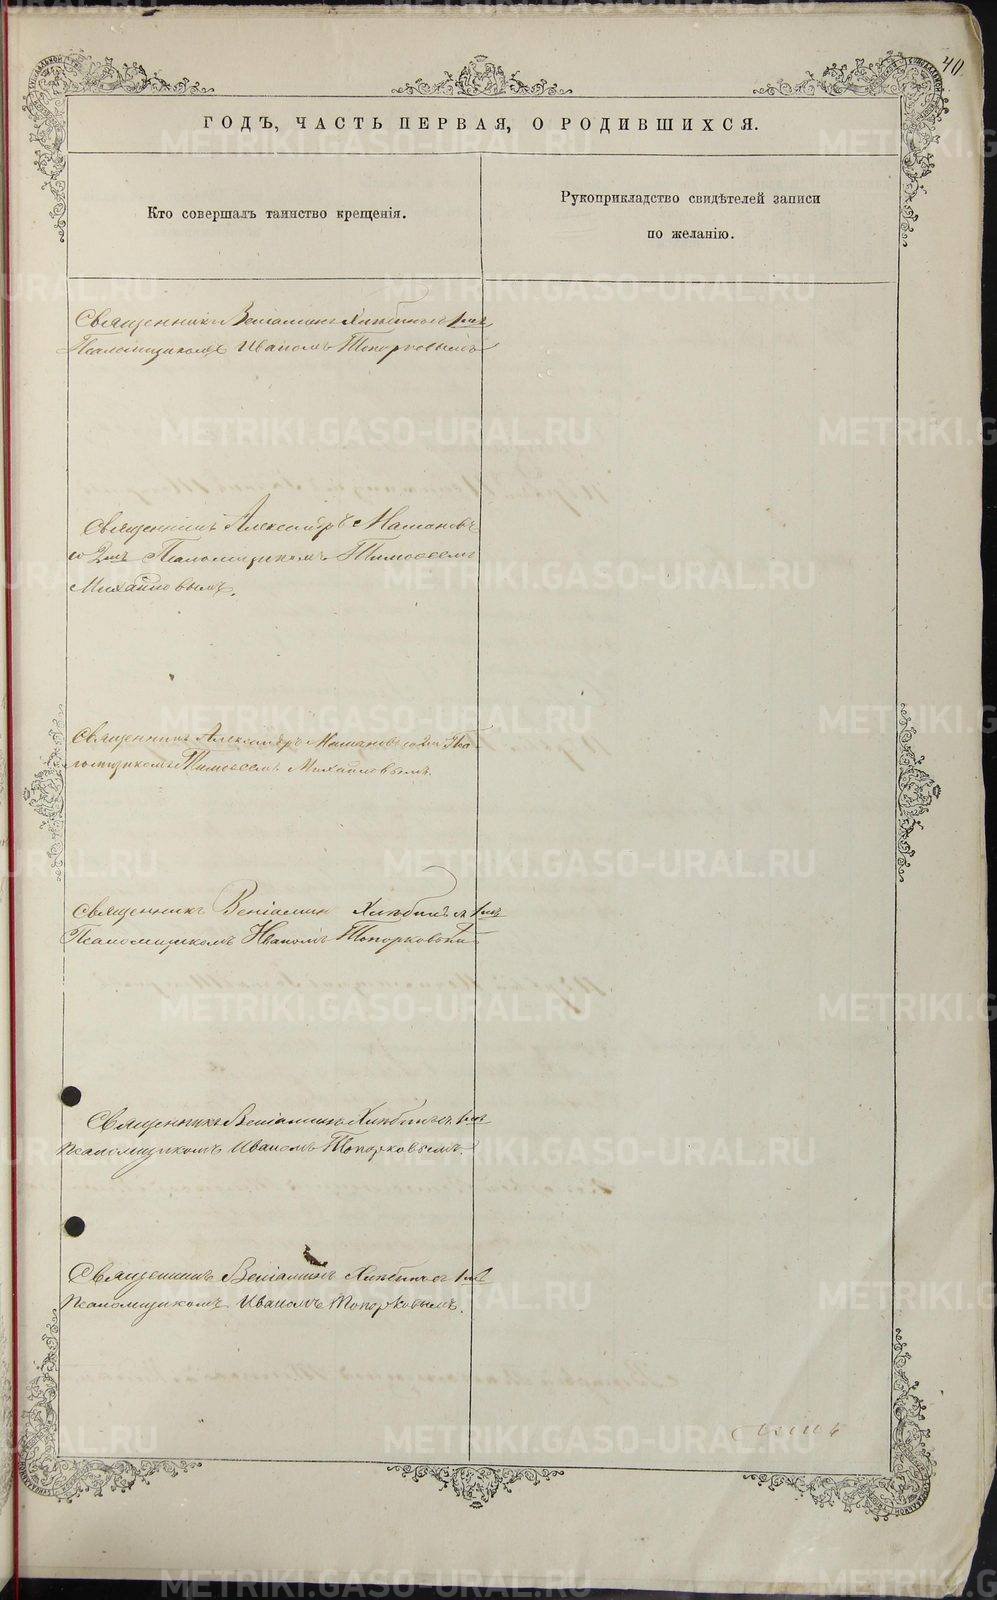 40.
ГОДЪ, ЧАСТЬ ПЕРВАЯ, О РОДИВШИХСЯ.
Кто совершалъ таинство крещенія.
Рукоприкладство свидѣтелей записи
по желанію.
Священникъ Веніаминъ Хлѣбинъ съ 1мъ
Псаломщикомъ Иваномъ Топорковымъ
Священникъ Александръ Мамановъ
со 2мъ Псаломщикомъ Тимоѳеемъ
Михайловымъ.
Священникъ Александръ Мамановъ со 2мъ Пса-
ломщикомъ Тимоѳеемъ Михайловымъ.
Священникъ Веніаминъ Хлѣбинъ съ 1мъ
Псаломщикомъ Иваномъ Топорковымъ
Священникъ Веніаминъ Хлѣбинъ съ 1мъ
псаломщикомъ Иваномъ Топорковымъ.
Священникъ Веніаминъ Хлѣбинъ съ 1мъ
Псаломщикомъ Иваномъ Топорковымъ.
METRIKI.GASO-URAL.RU